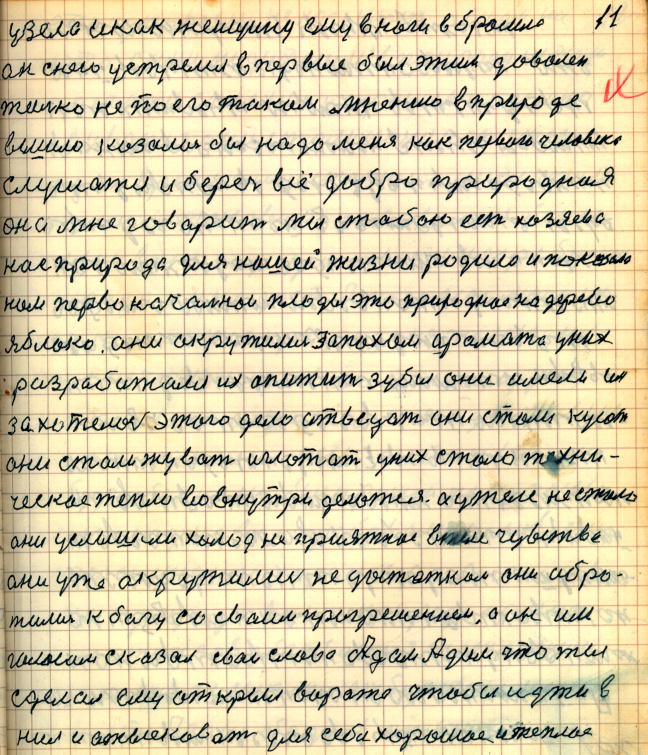 11
увела и как женщину ему в ноги вбросило
он сного устремил впервые был этим доволен
IX
только не по его таком мнению вприроде
вышло, казалос бы надо меня как первого человека
слушати и береч всё добро природноя
она мне говорит мы стобою ест хозяева
нас природа для нашей жизни родила и показала
ном первоначалной плоды это природное на дерево
яблоко, они окружили запохом аромата уних
разработался их опитит зубы они имели им
захотелос этого дело отведат они стали кусат
они стали жуват и глотат уних стало техни-
ческое тепло вовнутри делотся. а утеле не стало
они услышели холод не приятное в теле чувства
они уже окружились недостатком они обро-
тилис к богу со своим прогрешением, а он им
голосом сказал свои слова Адам Адам что ты
сделал ему открыл ворота чтобы идти в
них и отысковат для себя хорошое и теплое